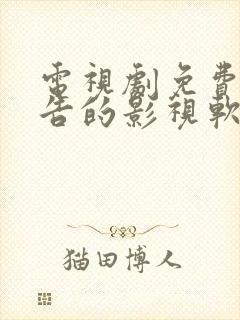 電視劇免費
告的影視軟
猫田博人